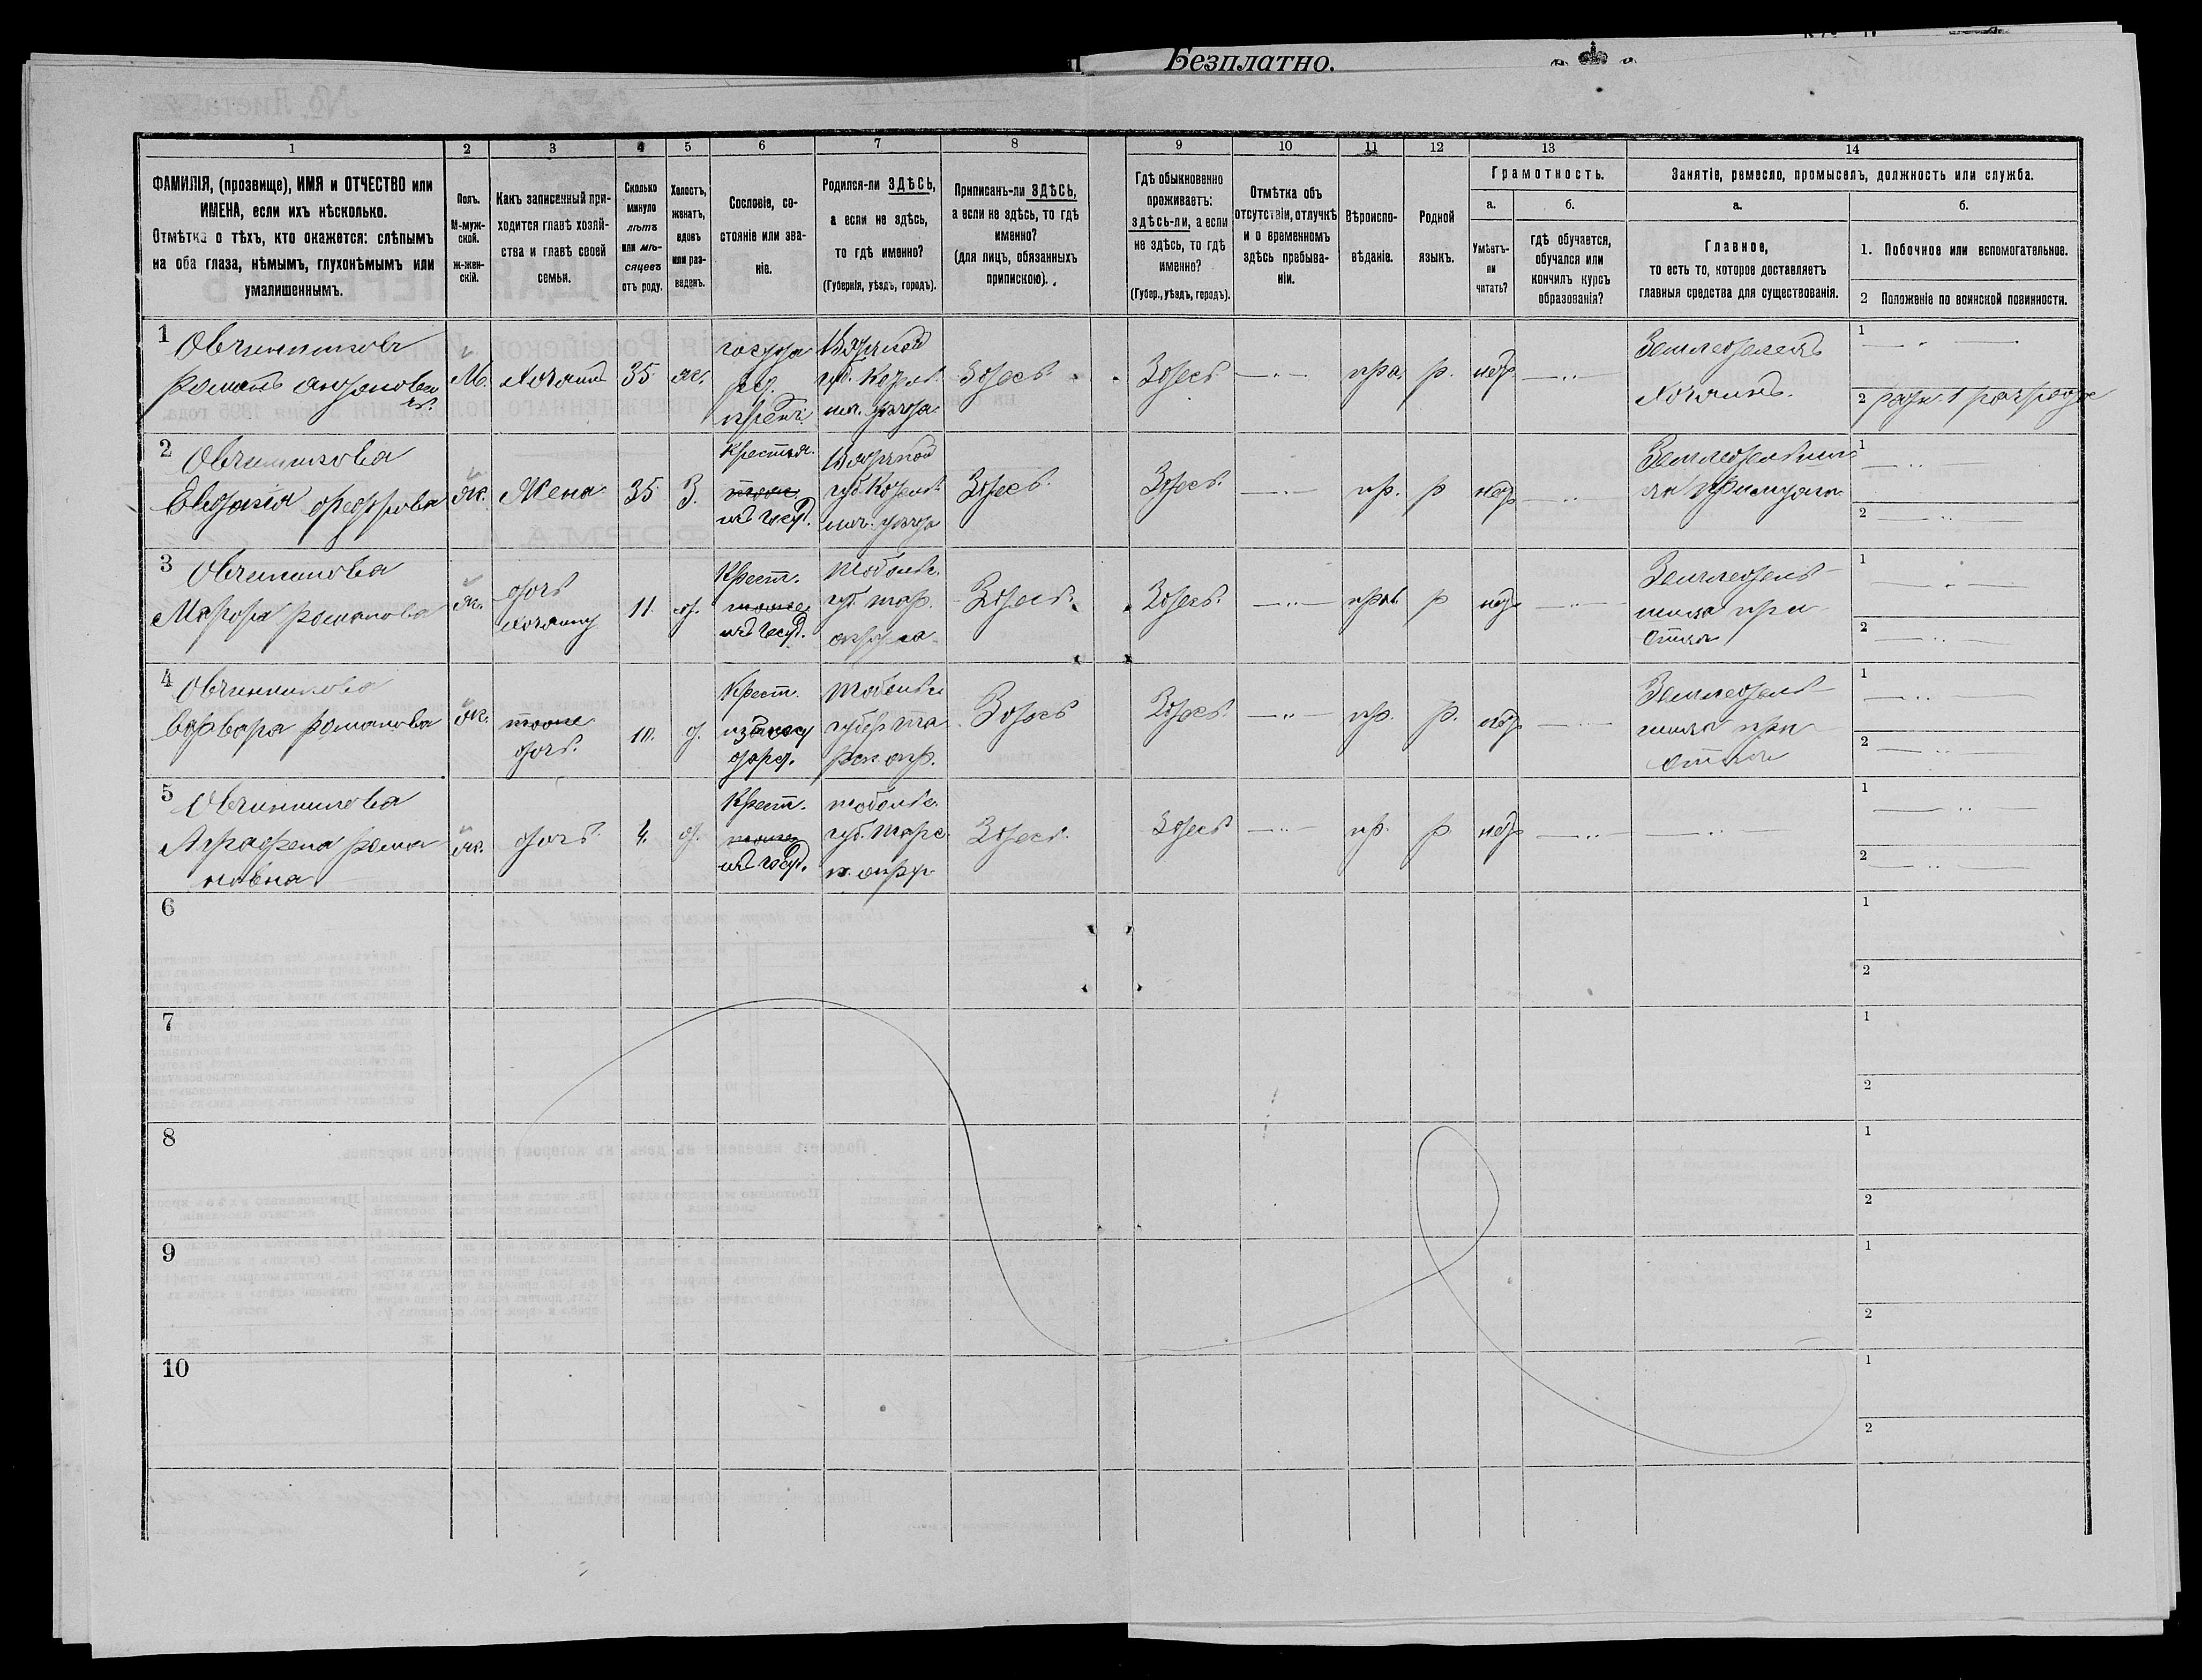 Безплатно.
1 2 3 4 5 6 7 8 9 10 11 12 13 14
ФАМИЛІЯ, (прозвище), ИМЯ и ОТЧЕСТВО или
ИМЕНА, если ихъ нѣсколько.
Отмѣтка о тѣхъ, кто окажется: слѣпымъ
на оба глаза, нѣмымъ, глухонѣмымъ или
умалишеннымъ.
Полъ.
М-муж-
ской.
Ж-жен-
скій.
Какъ записанный при-
ходится главѣ хозяй-
ства и главѣ своей
семьи.
Сколько
минуло
лѣтъ
или мѣ-
сяцевъ
отъ роду.
Холостъ,
женатъ,
вдовъ
или раз-
веденъ.
Сословіе, со-
стояніе или зва-
ніе.
Родился-ли ЗДѢСЬ,
а если не здѣсь,
то гдѣ именно?
(Губернія, уѣздъ, городъ).
Приписанъ-ли ЗДѢСЬ,
а если не здѣсь, то гдѣ
именно?
(для лицъ, обязанныхъ
припискою).
Гдѣ обыкновенно
проживаетъ:
здѣсь-ли, а если
не здѣсь, то гдѣ
именно?
(Губер., уѣздъ, городъ).
Отмѣтка объ
отсутствіи, отлучкѣ
и о временномъ
здѣсь пребыва-
ніи.
Вѣроиспо-
вѣданіе.
Родной
языкъ.
Грамотность.
а.
Умѣетъ-
ли
читать?
б.
гдѣ обучается,
обучался или
кончилъ курсъ
образованія?
Занятіе, ремесло, промыселъ, должность или служба.
а.
Главное,
то есть то, которое доставляетъ
главныя средства для существованія.
б.
1. Побочное или вспомогательное.
2 Положеніе по воинской повинности.
1 Овчинниковъ
Романъ
М.
Хозяинъ
35
ж.
госуда
крест.
Вятской
губ.
уѣзда
Здѣсь
Здѣсь
пра.
р.
нѣт
Земледѣлецъ
Хозяинъ.
1
2 ратн. 1 разряда
2 Овчинникова
Евдокія Федорова
ж.
Жена
35
З.
Крестья.
изъ госуд.
Вятской
губ.
уѣзда
Здѣсь.
Здѣсь.
пр.
р
нѣт
Земледѣлица
при мужѣ
1
2
3 Овчинникова
Марфа Романова
ж.
дочь
хозяину
11.
д.
Крест.
изъ госуд.
Тобольс.
губ. Тар.
округа
Здѣсь.
Здѣсь.
прав.
р
нѣт
Земледѣль-
ница при
отцѣ
1
2
4 Овчинникова
Варвара Романова
ж.
дочь.
10.
д.
Крест.
изъ госу
дарс.
Тобольс.
губер Та
рск окр.
Здѣсь
Здѣсь.
пр.
р.
нѣт
Земледѣль-
ница при
отцѣ
1
2
5 Овчинникова
Аграфена Рома
новна
ж.
дочь.
4.
д.
Крест.
изъ госуд.
Тобольс.
губ. Тарс.
к. окру
Здѣсь.
Здѣсь
пр.
р
нѣт
1
2
6
1
2
7
1
2
8
1
2
9
1
2
10
1
2